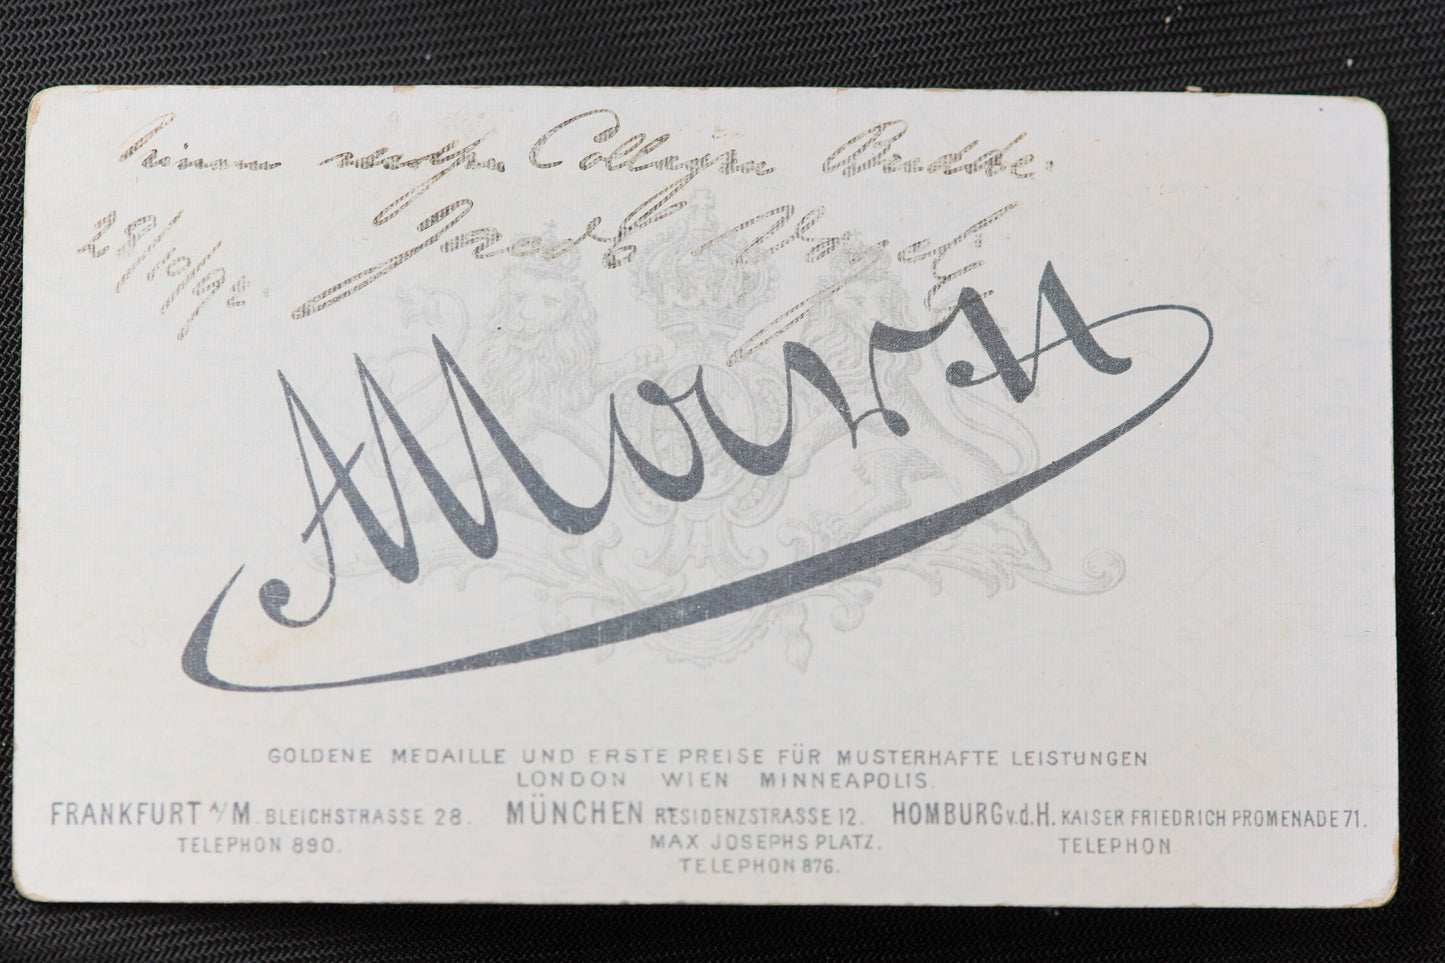 Seinem werthen Collegen Budde.
28/10/92. Jacob
GOLDENE MEDAILLE UND ERSTE PREISE FÜR MUSTERHAFTE LEISTUNGEN
LONDON WIEN MINNEAPOLIS.
FRANKFURT A/M. BLEICHSTRASSE 28. MÜNCHEN RESIDENZSTRASSE 12. HOMBURG v.d.H. KAISER FRIEDRICH PROMENADE 71.
TELEPHON 890. MAX JOSEPHS PLATZ. TELEPHON
TELEPHON 876.